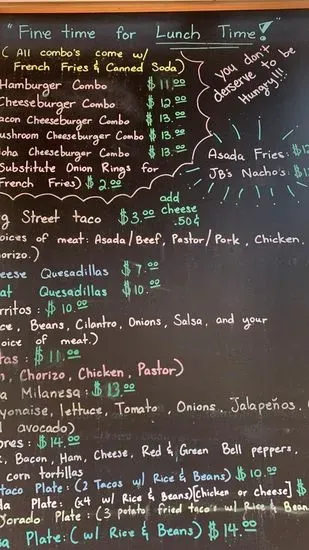 "Fine time for Lunch Time!"
( All combo's come w/
French Fries & Canned Soda)
Hamburger Combo $11.00
Cheeseburger Combo $12.00
acon Cheeseburger Combo $13.00
ushroom Cheeseburger Combo $13.00
loha Cheeseburger Combo $13.00
Substitute Onion Rings for
French Fries) $2.00
you don't
derserve to be
Hungry!!!
Asada Fries: $12
JB's Nacho's: $1
g Street taco $3.00 add cheese .50¢
oices of meat: Asada/Beef, Pastor/Pork, Chicken,
orizo.)
eese Quesadillas $7.00
at Quesadillas $10.00
rritos: $10.00
ce, Beans, Cilantro, Onions, Salsa, and your
oice of meat.)
tas: $11.00
, Chorizo, Chicken, Pastor)
a Milanesa: $13.00
yonaise, lettuce, Tomato, Onions, Jalapeños,
avocado)
ores: $14.00
, Bacon, Ham, Cheese, Red & Green Bell peppers,
corn tortillas
taco Plate: (2 Tacos w/ Rice & Beans) $10.00
da Plate: (x4 w/ Rice & Beans)[chicken or cheese] $
Dorado Plate: (3 potato fried taco's w/ Rice & Bean
sa Plate: ( w/ Rice & Beans) $14.00